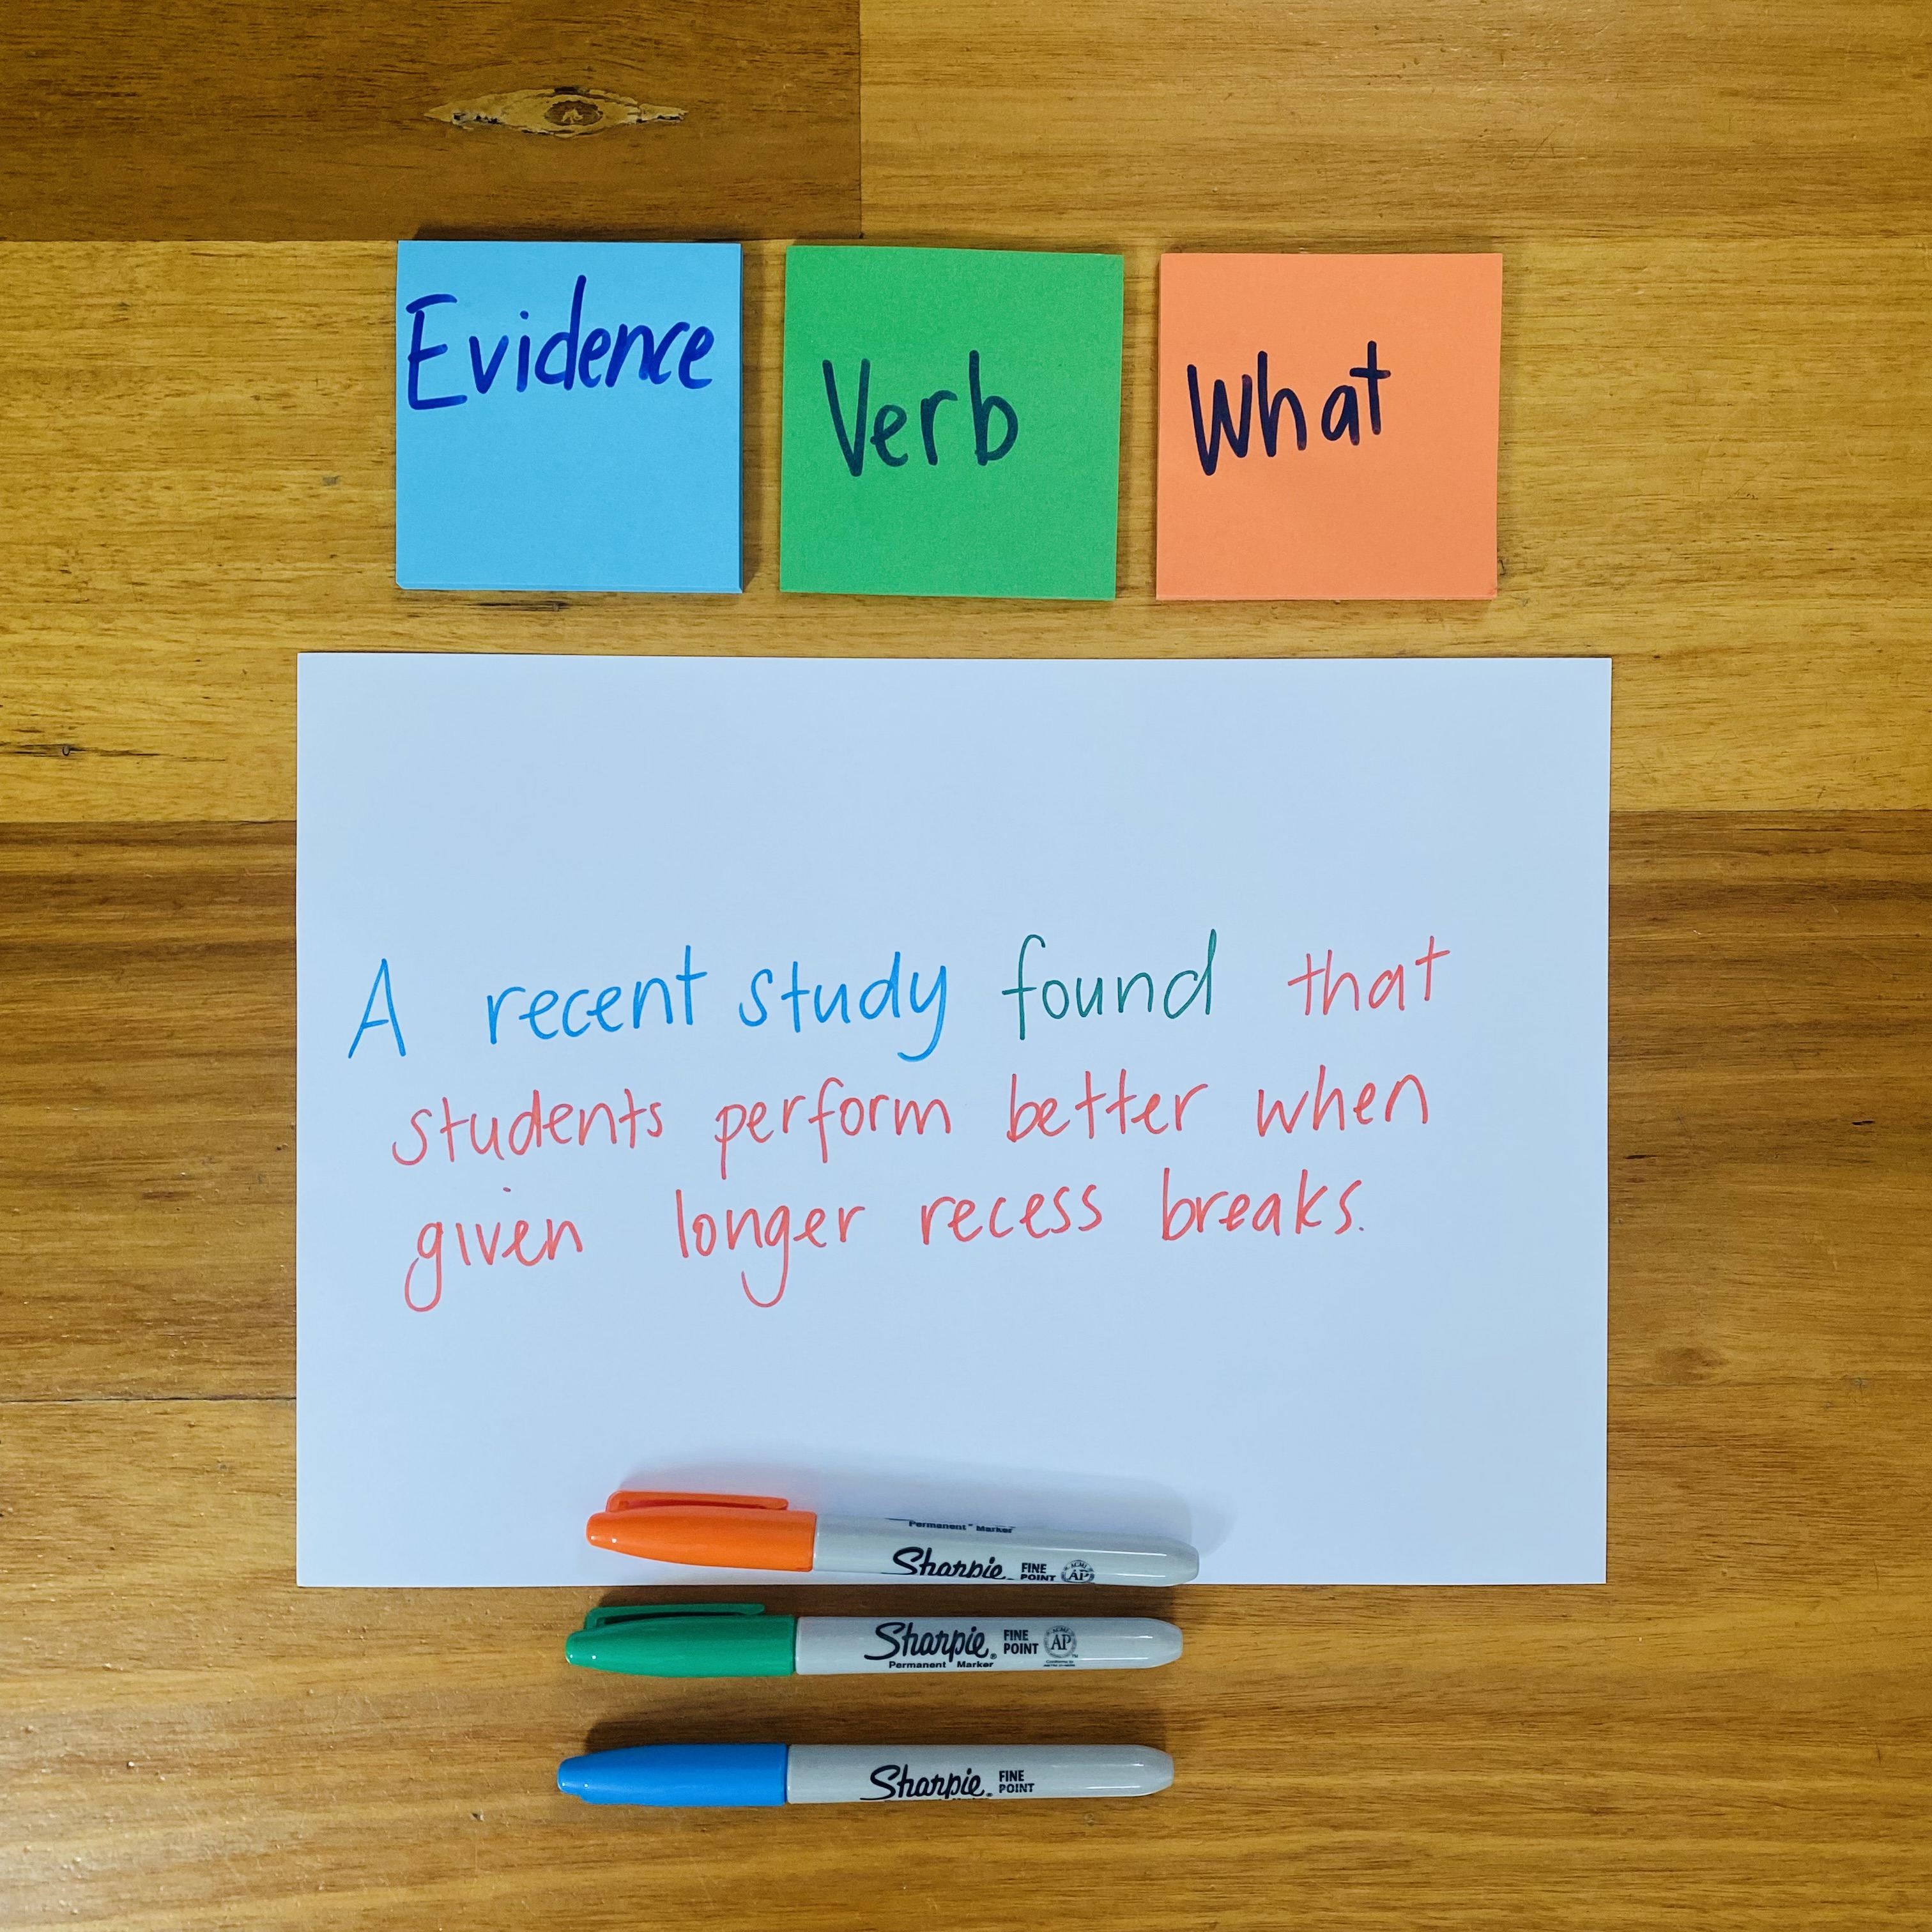 Evidence
Verb
What
A recent study found that
students perform better when
given longer recess breaks.
Permanent Marker
Sharpie FINE
POINT
AP
Sharpie FINE
POINT
AP
Permanent Marker
Sharpie FINE
POINT